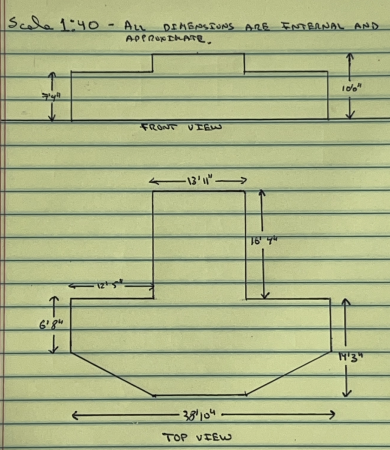 Scale 1:40 - ALL DIMENSIONS ARE INTERNAL AND
APPROXIMATE.
7'4"
10'0"
FRONT VIEW
13'11"
16'4"
12'5"
6'8"
14'3"
38'10"
TOP VIEW